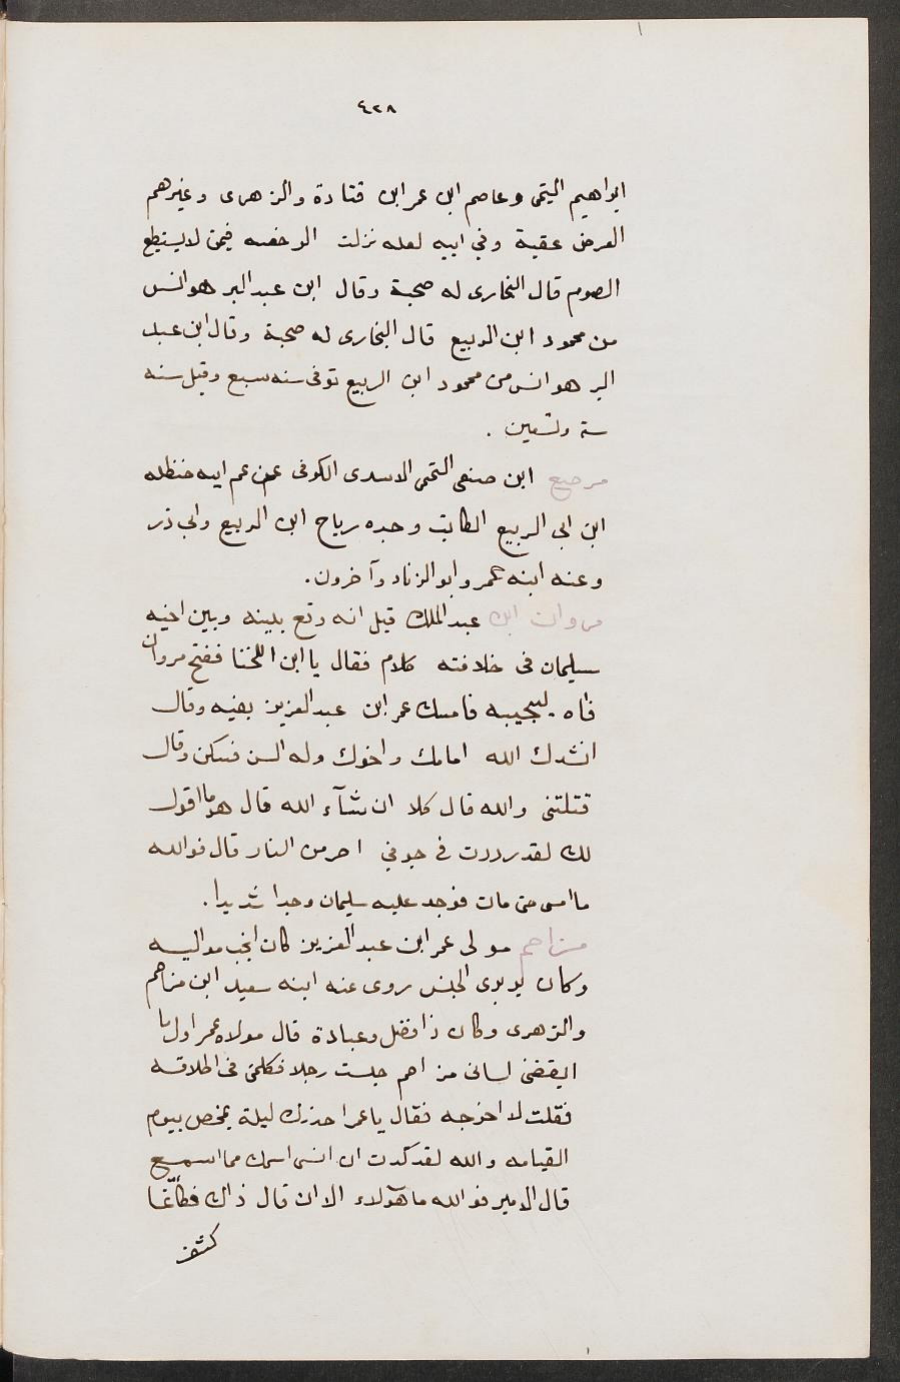 ٤٢٨
ابراهيم التيمى وعاصم ابن عمر ابن قتادة والزهرى وغيرهم
العرض عقبة وفي ابيه لعله نزلت الرخصه فيمن لا يستطع
الصوم قال البخارى له صحبة وقال ابن عبد البر هو انس
من محمود ابن الربيع قال البخارى له صحبة وقال ابن عبد
البر هو انس من محمود ابن الربيع توفى سنه سبع وقيل سنه
ستة وتسعين .
مرصع ابن صيفى التميمى الاسدى الكوفى عن عم ابيه حنظله
ابن ابى الربيع الكاتب وجده رياح ابن الربيع وابى ذر
وعنه ابنه عمر وابو الزناد وآخرون.
مروان ابن عبد الملك قيل انه وقع بينه وبين اخيه
سليمان فى خلافته كلام فقال يا ابن اللخنا ففتح مروان
فاه ليجيبه فامسك عمر ابن عبد العزيز بفيه وقال
انشدك الله امامك واخوك وله السن فسكن وقال
قتلتنى والله قال كلا ان شآء الله قال هو ما اقول
لك لقد رددت فى جوفى احر من النار قال فوالله
ما امسى حتى مات فوجد عليه سليمان وجدا شديدا.
مزاحم مولى عمر ابن عبد العزيز كان انجب مواليه
وكان بربرى الجنس روى عنه ابنه سعيد ابن مزاحم
والزهرى وكان ذا فضل وعبادة قال مولاه عمر اول ما
ايقضنى لسانى مزاحم حبست رجلا فكلمنى فى اطلاقه
فقلت لا اخرجه فقال يا عمر احذرك ليلة تمخض بيوم
القيامه والله لقد كدت ان انسى اسمك مما اسمع
قال الامير فوالله ما هولاء الا ان قال ذاك فكأنما
كشف